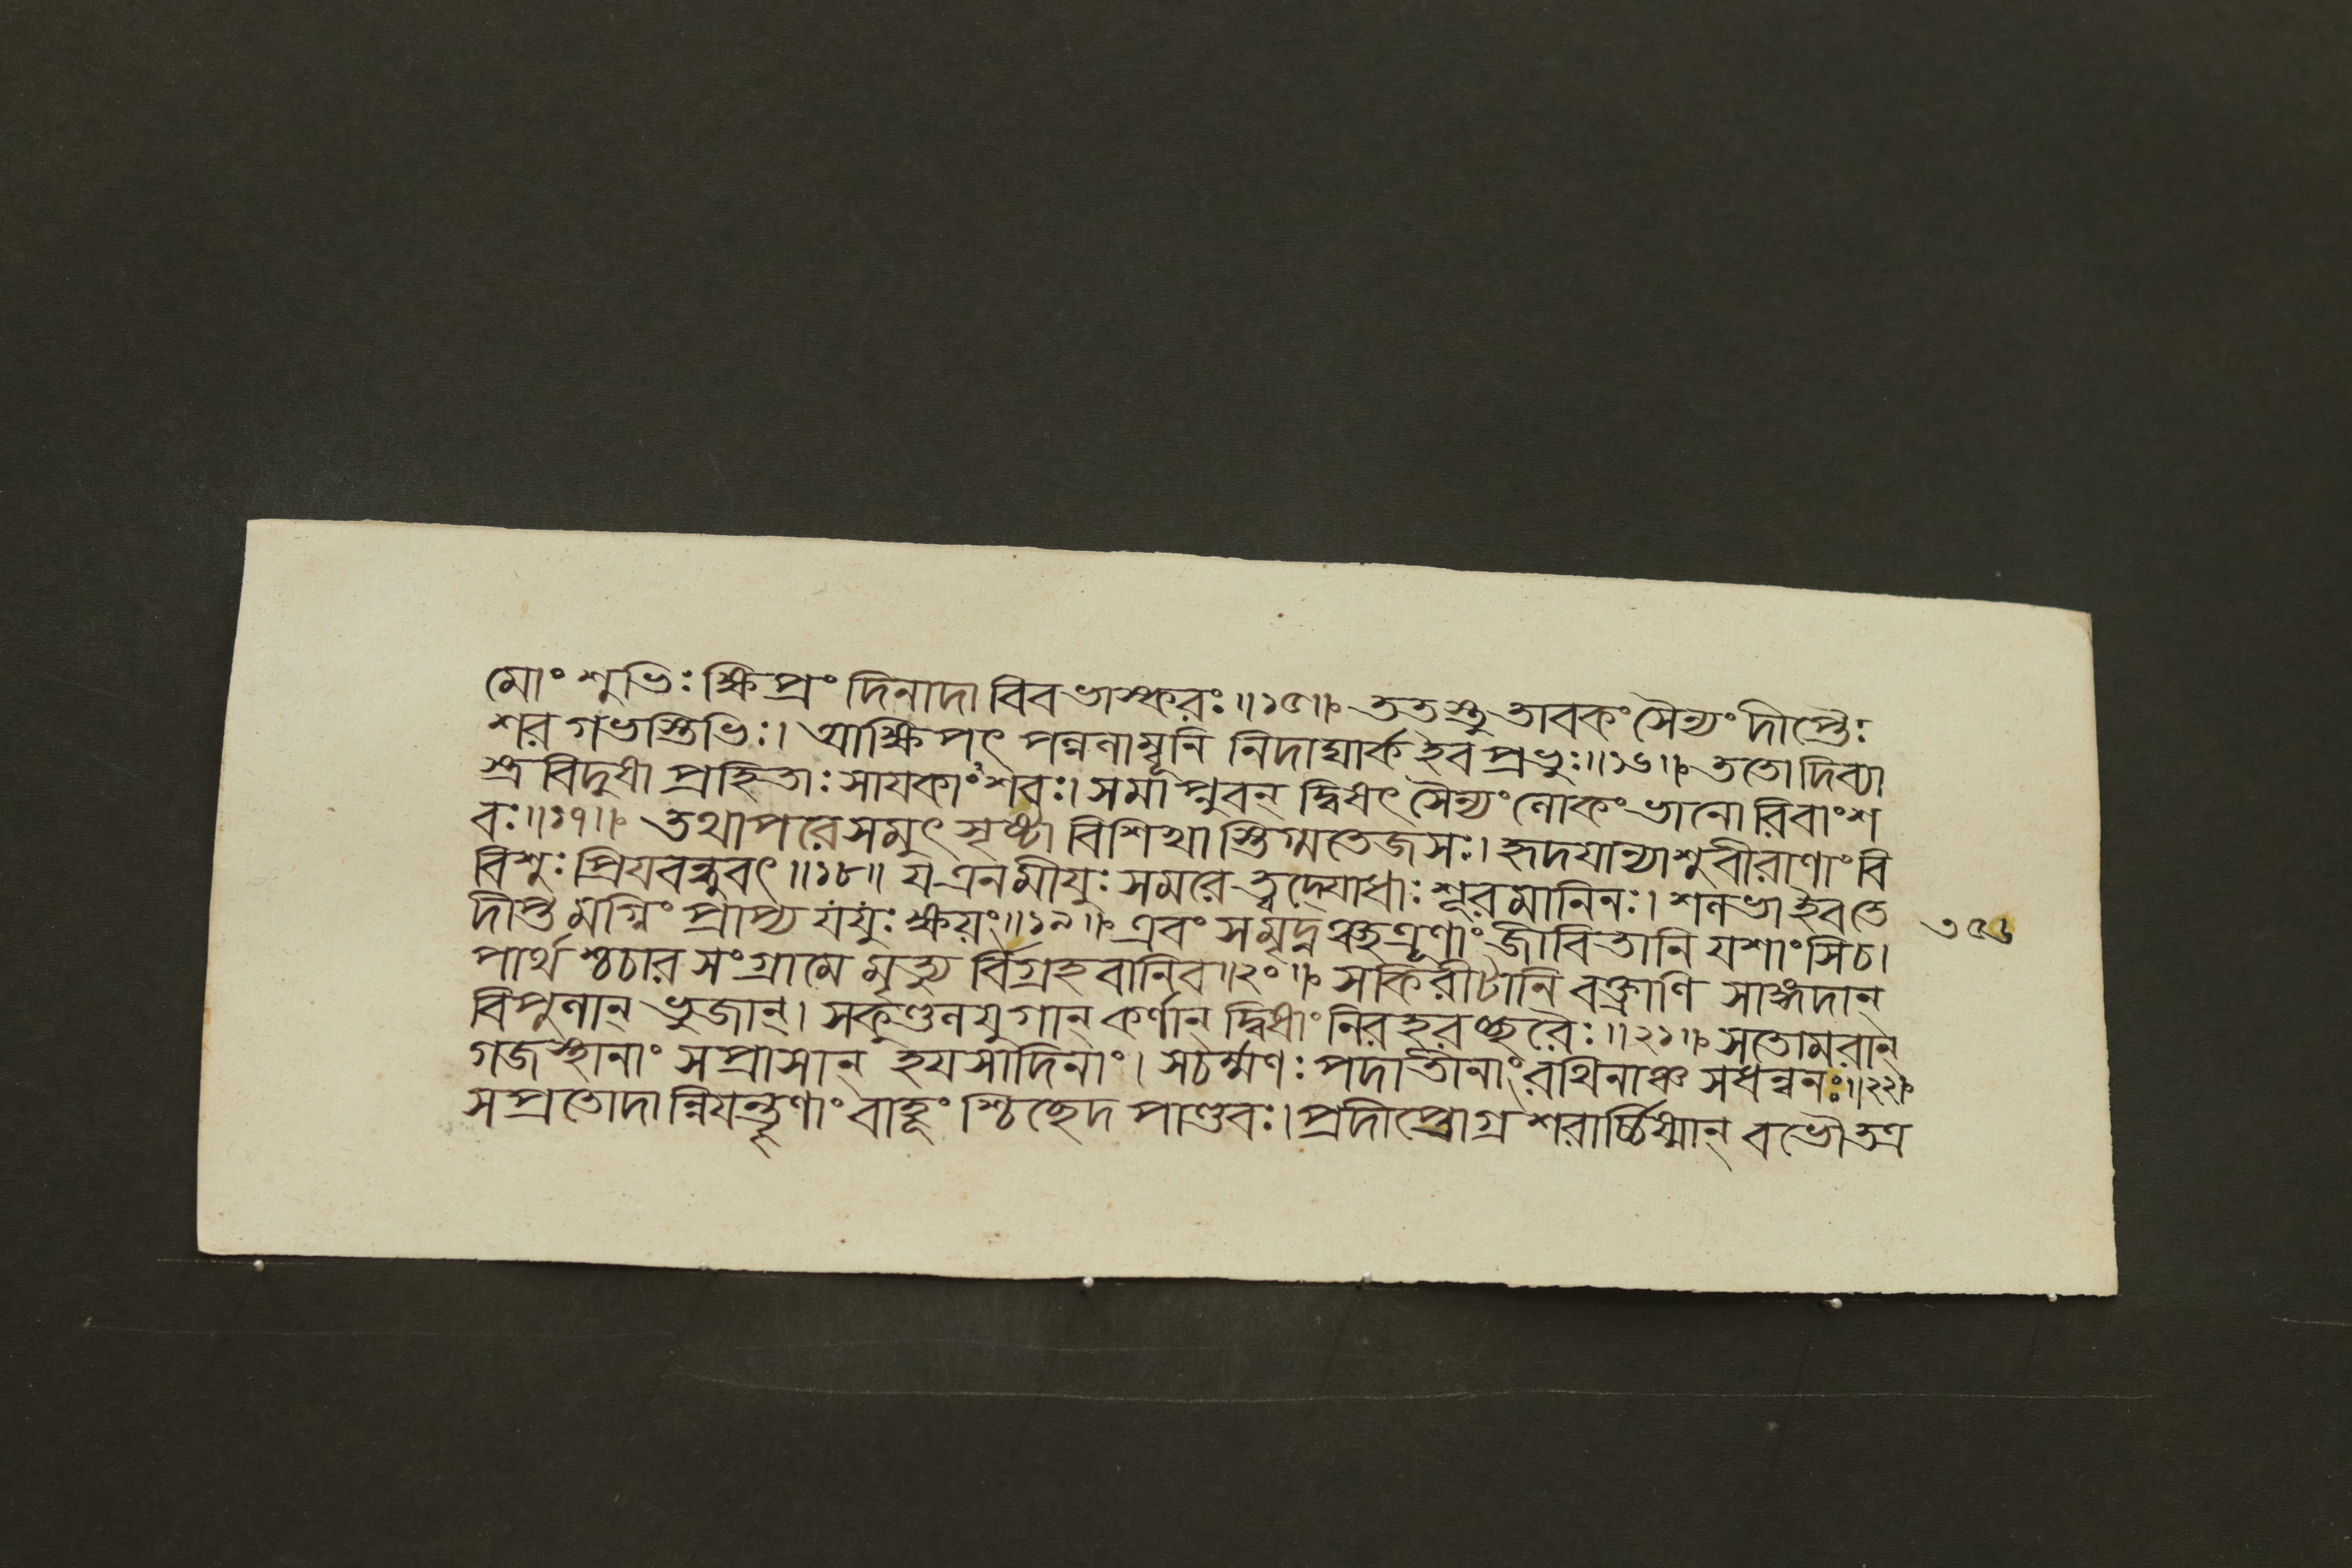 মোংশুভিঃ ক্ষিপ্রং দিনাদাবিব ভাস্করঃ॥১৫॥ ততস্তু তাবকং সৈন্যং দীপ্তৈঃ
শর গভস্তিভিঃ। আক্ষিপৎ পল্বলাম্বূনি নিদাঘার্ক ইব প্রভুঃ॥১৬॥ ততো দিব্যা
স্ত্র বিদুষা প্রহিতাঃ সায়কাংশবঃ। সমাপ্লুবন্ দ্বিষৎ সৈন্যং লোকং ভানো রিবাংশ
বঃ॥১৭॥ তথাপরে সমুৎ সৃষ্টা বিশিখা স্তিগ্মতেজসঃ। হৃদযান্যাশু বীরাণাং বি
বিশুঃ প্রিয়বন্ধুবৎ॥১৮॥ য এনমীযুঃ সমরে ত্বদ্যোধাঃ শূরমানিনঃ। শলভা ইব তে
দীপ্ত মগ্নিং প্রাপ্য যযুঃ ক্ষয়ং॥১৯॥ এবং সমৃদ্নঞ্ছত্রূণাং জীবিতানি যশাংসি চ।
৩৫৬
পার্থ শ্চচার সংগ্রামে মৃত্যু র্বিগ্রহবানিব॥২০॥ সকিরীটানি বক্ত্রাণি সাঙ্গদান্
বিপুলান্ ভুজান্। সকুণ্ডলযুগান্ কর্ণান্ দ্বিষাং নিরহরচ্ছরৈঃ॥২১॥ সতোমরান্
গজস্থানাং সপ্রাসান্ হয়সাদিনাং। সচর্ম্মণঃ পদাতীনাং রথিনাঞ্চ সধন্বনঃ॥২২॥
সপ্রতোদান্নিয়ন্তৄণাং বাহূং শ্চিচ্ছেদ পাণ্ডবঃ। প্রদীপ্তোগ্র শরার্চ্চিষ্মান্ বভৌ তত্র